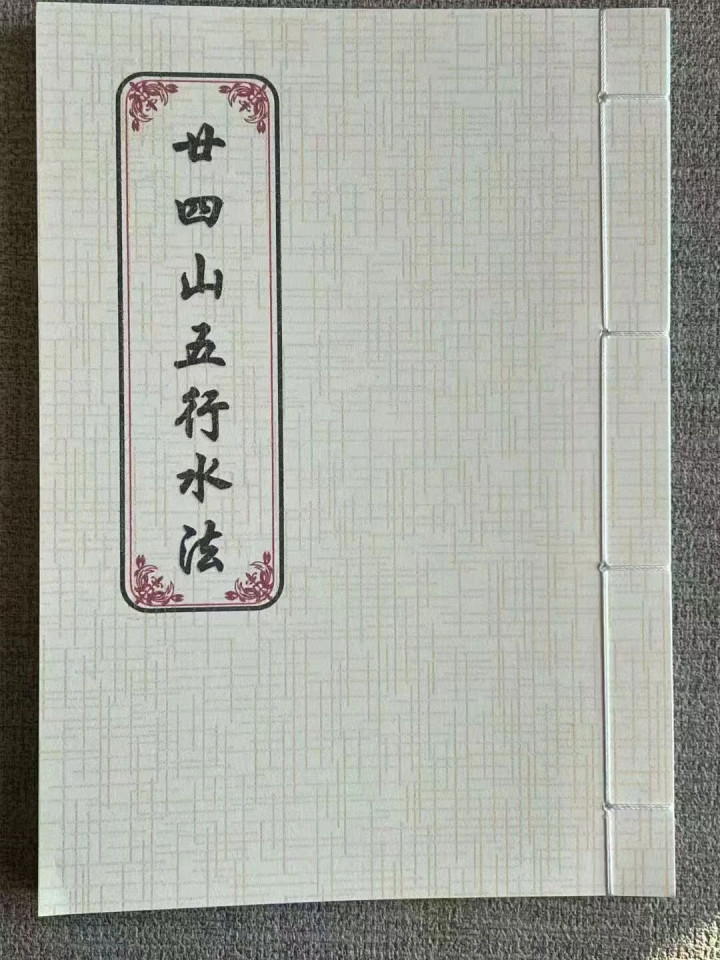 廿四山五行水法